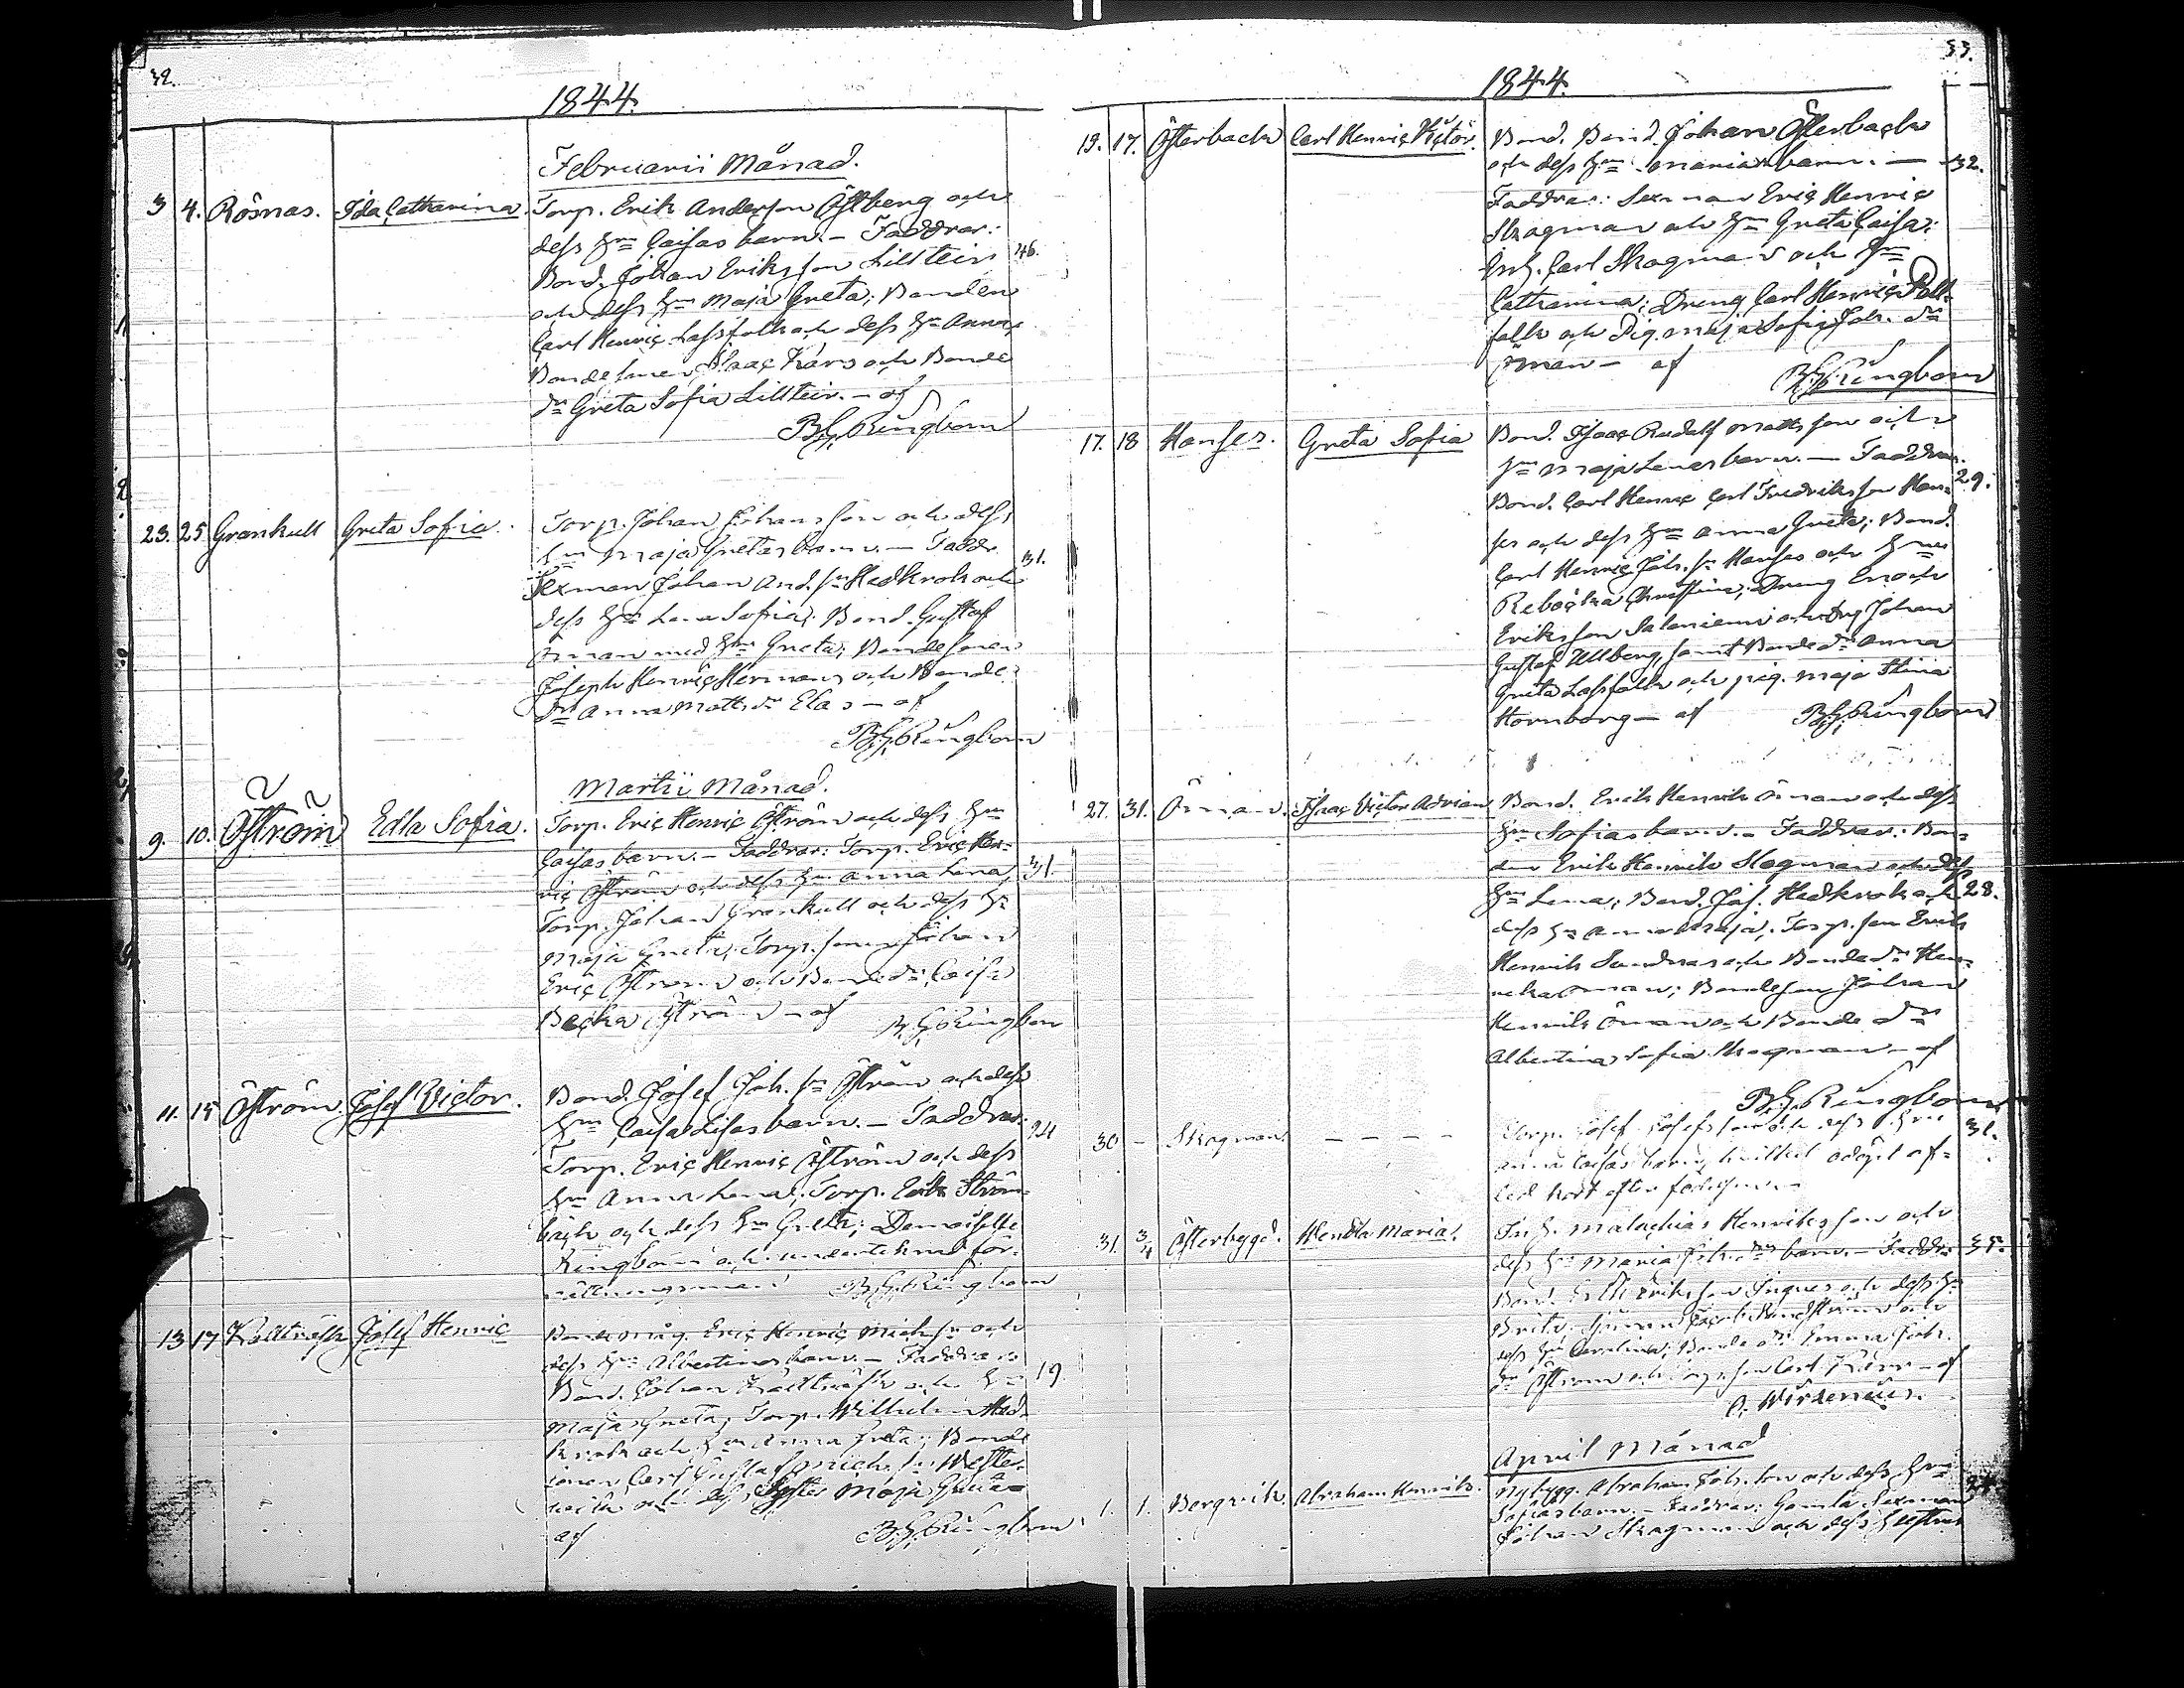 32.
1844.
Februarii Månad.
3 4. Rösnas. Ida Catharina. Torp. Erik Andersson Östberg och
dess Hu Caisas barn. - Faddrar:
Bond. Johan Eriksson Lillteir 46.
och dess Hu Maja Greta; Bonden
Carl Henric Lassfolk och dess Hu Anna,
Bondesonen Isaac Kårs och Bonde
Dr Greta Sofia Lillteir. - af
B.G. Ringbom
23. 25 Grankull Greta Sofia. Torp. Johan Johansson och dess
Hu Maja Gretas barn. - Faddr.
Sexman Johan And. sn Hedkrok och 31.
dess Hu Lena Sofia; Bond. Gustaf
Öman med Hu Greta; Bondesonen
Joseph Henric Hermans och Bonde
Dr Anna Matts dr Elas - af
B.G. Ringbom
Martii Månad.
9. 10. Öström Edla Sofia. Torp. Eric Henric Öström och dess Hu
Caisas barn. - Faddrar: Torp. Eric Hen-
ric Öström och dess Hu Anna Lena, 31.
Torp. Johan Grankull och dess Hu
Maja Greta, Torp. sonen Johan
Eric Öström och Bonde dr Caisa
Becka Öström - af B.G. Ringbom
11. 15 Öström. Josef Victor. Bond. Josef Joh. sn Öström och dess
Hu Caisa Lisas barn. - Faddrar: 24
Torp. Eric Henric Öström och dess
Hu Anna Lena; Torp. Erik Ström-
bäck och dess Hu Greta; Demoiselle
Ringbom och undertecknad för-
rättningsman B.G. Ringbom
13 17 Kallträsk Josef Henric Bondemåg. Eric Henric Mich. sn och
dess Hu Albertinas barn. - Faddrar
Bond. Johan Kallträsk och Hu 19.
Maja Greta, Torp. Wilhelm Hed-
krok och Hu Anna Greta; Bonde
sonen Carl Gustaf Mich. sn Wester-
och dess Syster Maja Greta
af B.G. Ringbom
33.
1844.
13. 17. Österback Carl Henric Victor. Bond. Bond. Johan Österback
och dess Hu Marias barn. - 32.
Faddrar: Sexman Eric Henric
Skogman och Hu Greta Caisa;
Inh. Carl Skogman och Hu
Catharina; Dreng Carl Henric
folk och Pig. Maja Sofia Joh. dr
Öman - af B.G. Ringbom
17. 18 Hanses. Greta Sofia Bond. Isaac Rudolf Matts son och
Hu Maja Lenas barn. - Faddrar.
Bond. Carl Henric Carl Fredriksson Han- 29.
ses och dess Hu Anna Greta; Bond.
Carl Henric Joh. sn Hanses och Hu
Rebecka Christina; Dreng Enoch
Eriksson Salaniemi och Johan
Gustaf Ullberg, samt Bonde dr Anna
Greta Lassfolk och pig. Maja Stina
Hornborg - af B.G. Ringbom
27. 31. Öman. Isaac Victor Adrian Bond. Erik Henrik Öman och dess
Hu Sofias barn. - Faddrar: Bon-
den Erik Henrik Skogman och dess
Hu Lena; Bond. Jos. Hedkrok och 28.
dess Hu Anna Maja, Torp. son Erik
Henrik Sandnas och Bonde dr Hen-
rika Öman; Bondeson Johan
Henrik Öman och Bonde dr
Albertina Sofia Skogman - af
B.G. Ringbom
30 - Skogman. - - - - Torp. Josef Josefsson och dess Hu 31.
Anna Caisas barn, hvilket odöpt af-
led kort efter födelsen.
31. 3/4 Österbygd. Hendla Maria. Inh. Malachias Henriksson och
dess Hu Maria Joh. drs barn. - Faddr. 35.
Bond. Eriksson Ingves och dess Hu
Brita,
dess Hu Carolina; Bonde dr Joh.
dr Öström och son Carl - af
O. Wirzenius.
April Månad
1. 1. Bergvik Abraham Henrik. Nybygg. Abraham Joh. son och dess Hu 24.
Sofias barn. - Faddrar: Gamla Sexman
Johan Skogman och dess Hustru